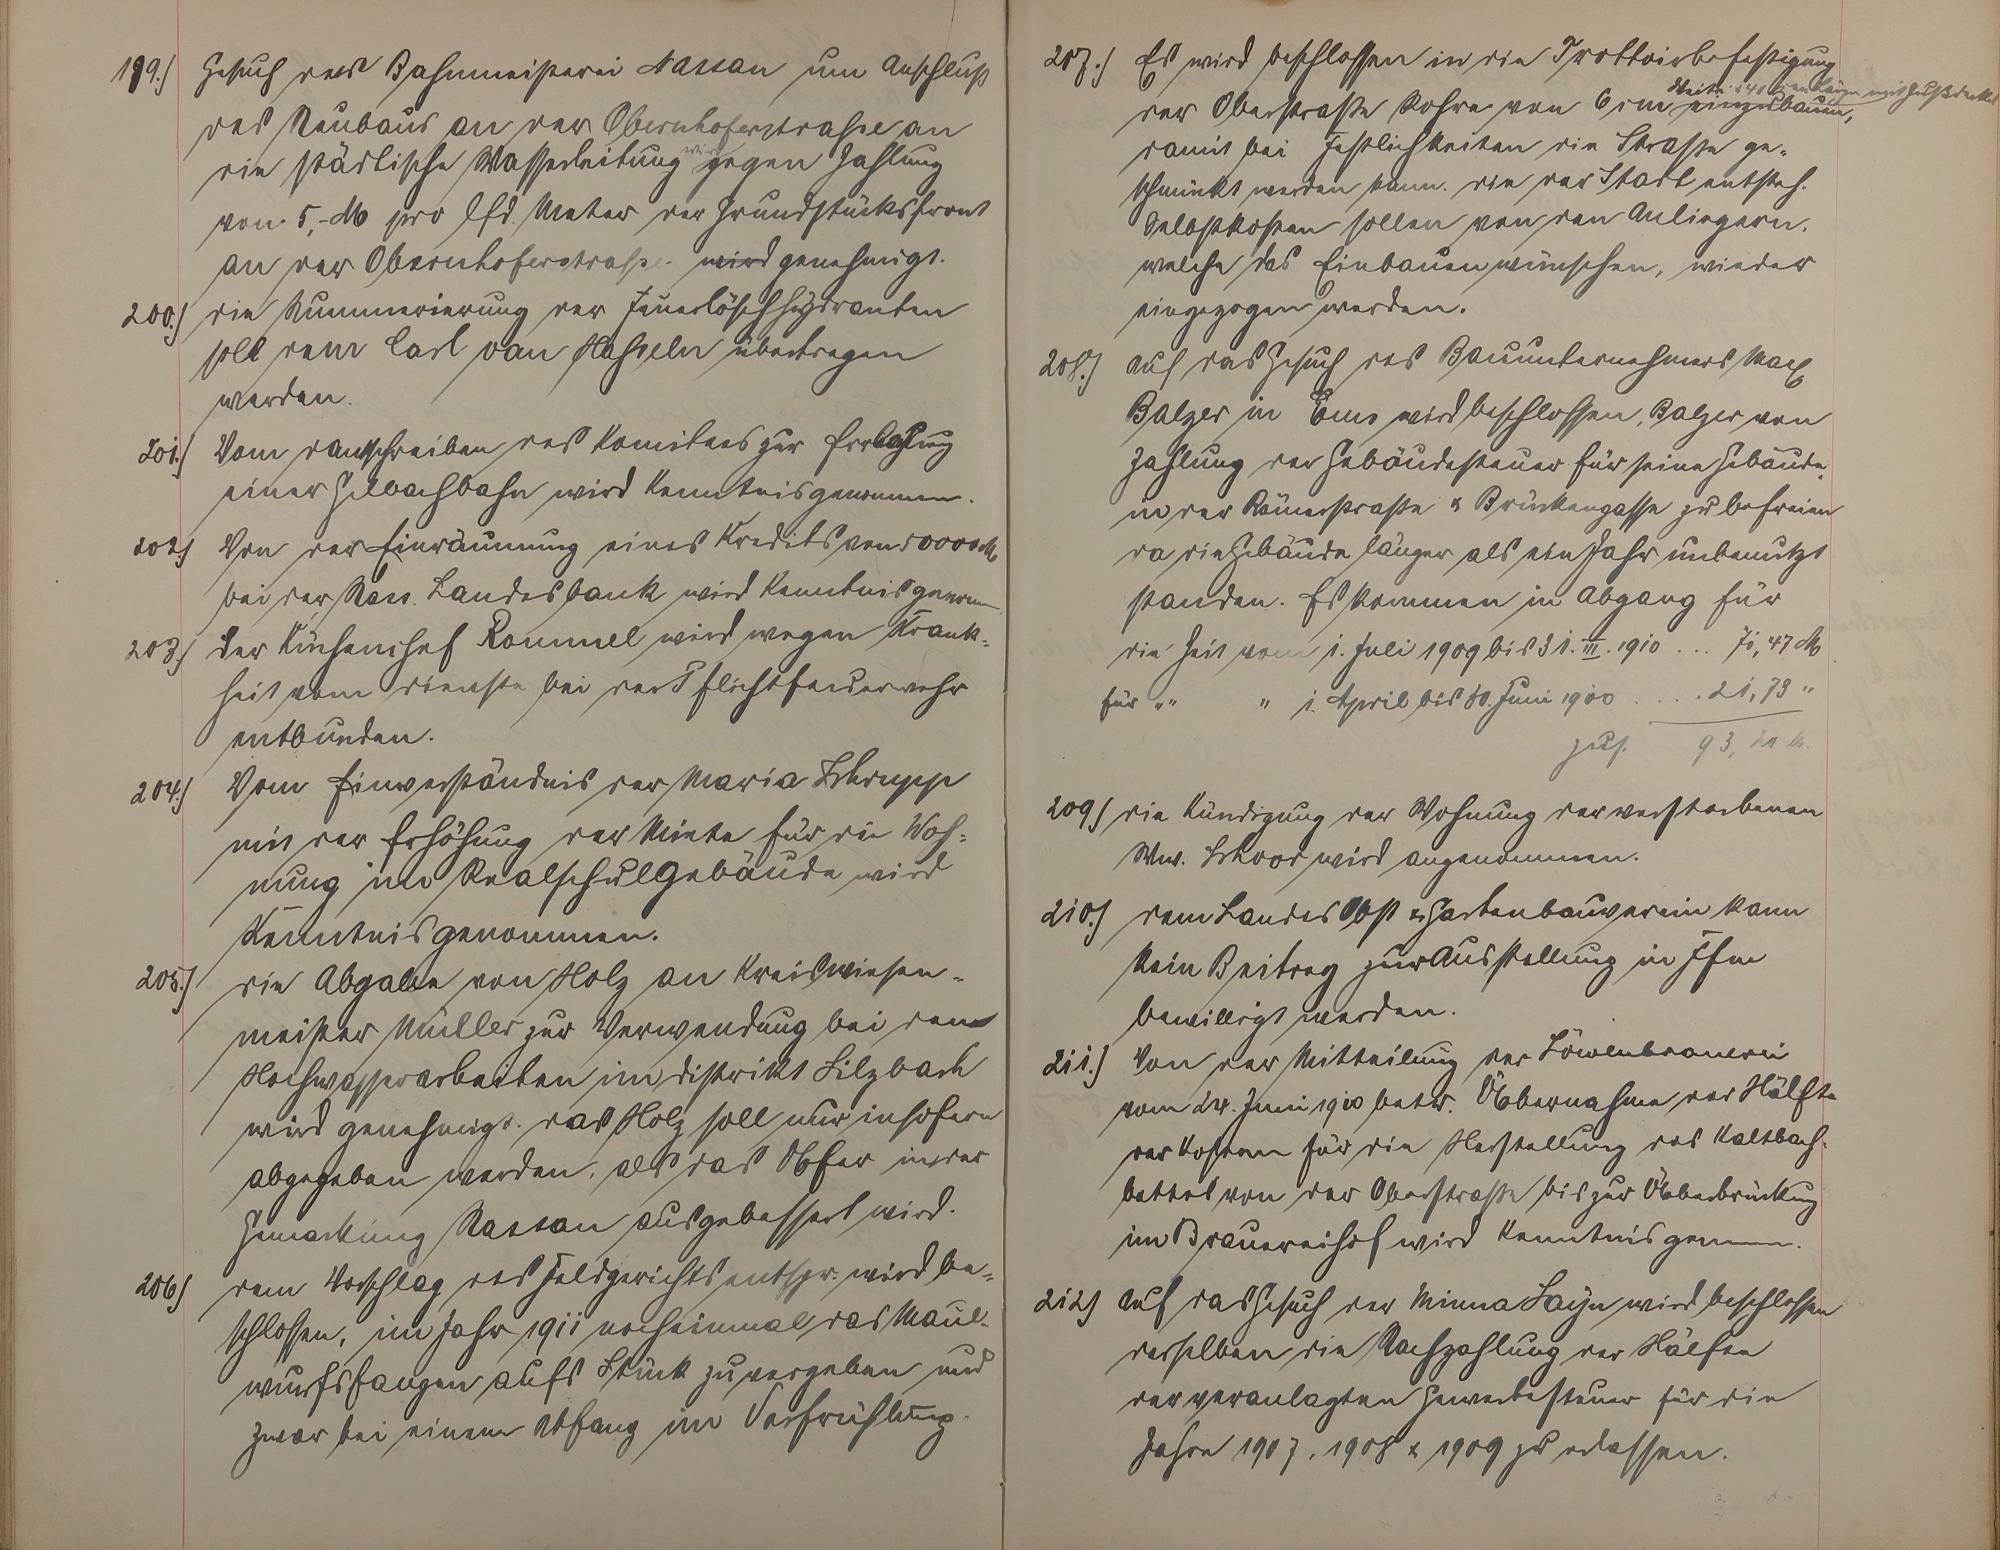 199.) Gesuch der Bahnmeisterei Nassau um Anschluß
des Neubaus an der Obernhoferstraße an
die städtische Wasserleitung wird gegen Zahlung
von 5,- M pro lfd. Meter der Grundstücksfront
an der Obernhoferstraße wird genehmigt.
200.) die Nummerierung der Feuerlöschhydranten
soll dem Carl van Haßeln übertragen
werden.
201.) Vom Dankschreiben des Komitees zur Erbauung
einer Gelbachbahn wird Kenntnis genommen.
202.) Von der Einräumung eines Kredits von 50000 M
bei der Nass. Landesbank wird Kenntnis genomm.
203.) Der Küchenchef Rommel wird wegen Krank-
heit vom Dienste bei der Pflichtfeuerwehr
entbunden.
204.) Vom Einverständnis der Maria Schrupp
mit der Erhöhung der Miete für die Woh-
nung im Realschulgebäude wird
Kenntnis genommen.
205.) die Abgabe von Holz an Kreiswiesen-
meister Müller zur Verwendung bei den
Hochwasserarbeiten im Distrikt Silzbach
wird genehmigt. das Holz soll nur insofern
abgegeben werden, als das Ufer in der
Gemarkung Nassau ausgebessert wird.
206.) dem Vorschlag des Feldgerichts entspr. wird be-
schlossen, im Jahr 1911 nocheinmal das Maul-
wurfsfangen aufs Stück zu vergeben und
zwar bei einem Abfang im Vorfrühling.
207.) Es wird beschlossen in die Trottoirbefestigung
der Oberstraße Rohre von 6 cm Weite & 40 cm Länge mit Gußdeckel einzubauen,
damit bei Festlichkeiten die Straße ge-
schmückt werden kann. die der Stadt entsteh.
Selbstkosten sollen von den Anliegern,
welche das Einbauen wünschen, wieder
eingezogen werden.
208.) auf das Gesuch des Bauunternehmers Max
Balzer in Ems wird beschlossen, Balzer von
Zahlung der Gebäudesteuer für seine Gebäude
in der Römerstraße & Brückengasse zu befreien
da die Gebäude länger als ein Jahr unbenutzt
standen. Es kommen in Abgang für
die Zeit vom 1. Juli 1909 bis 31. III. 1910 ... 71,47 M
für " " " 1. April bis 30. Juni 1910 .... 21,73 "
zus. 93,20 M.
209.) die Kündigung der Wohnung der verstorbenen
Ww. Schoor wird angenommen.
210.) dem Landes Obst & Gartenbauverein kann
kein Beitrag zur Ausstellung in Ffm
bewilligt werden.
211.) Von der Mitteilung der Löwenbrauerei
vom 24. Juni 1910 betr. Übernahme der Hälfte
der Kosten für die Herstellung des Kaltbach-
bettes von der Oberstraße bis zur Überbrückug
im Brauereihof wird Kenntnis genomm.
212.) auf das Gesuch der Minna Sayn wird beschlossen
derselben die Nachzahlung der Hälfte
der veranlagten Gewerbesteuer für die
Jahre 1907, 1908 & 1909 zu erlassen.